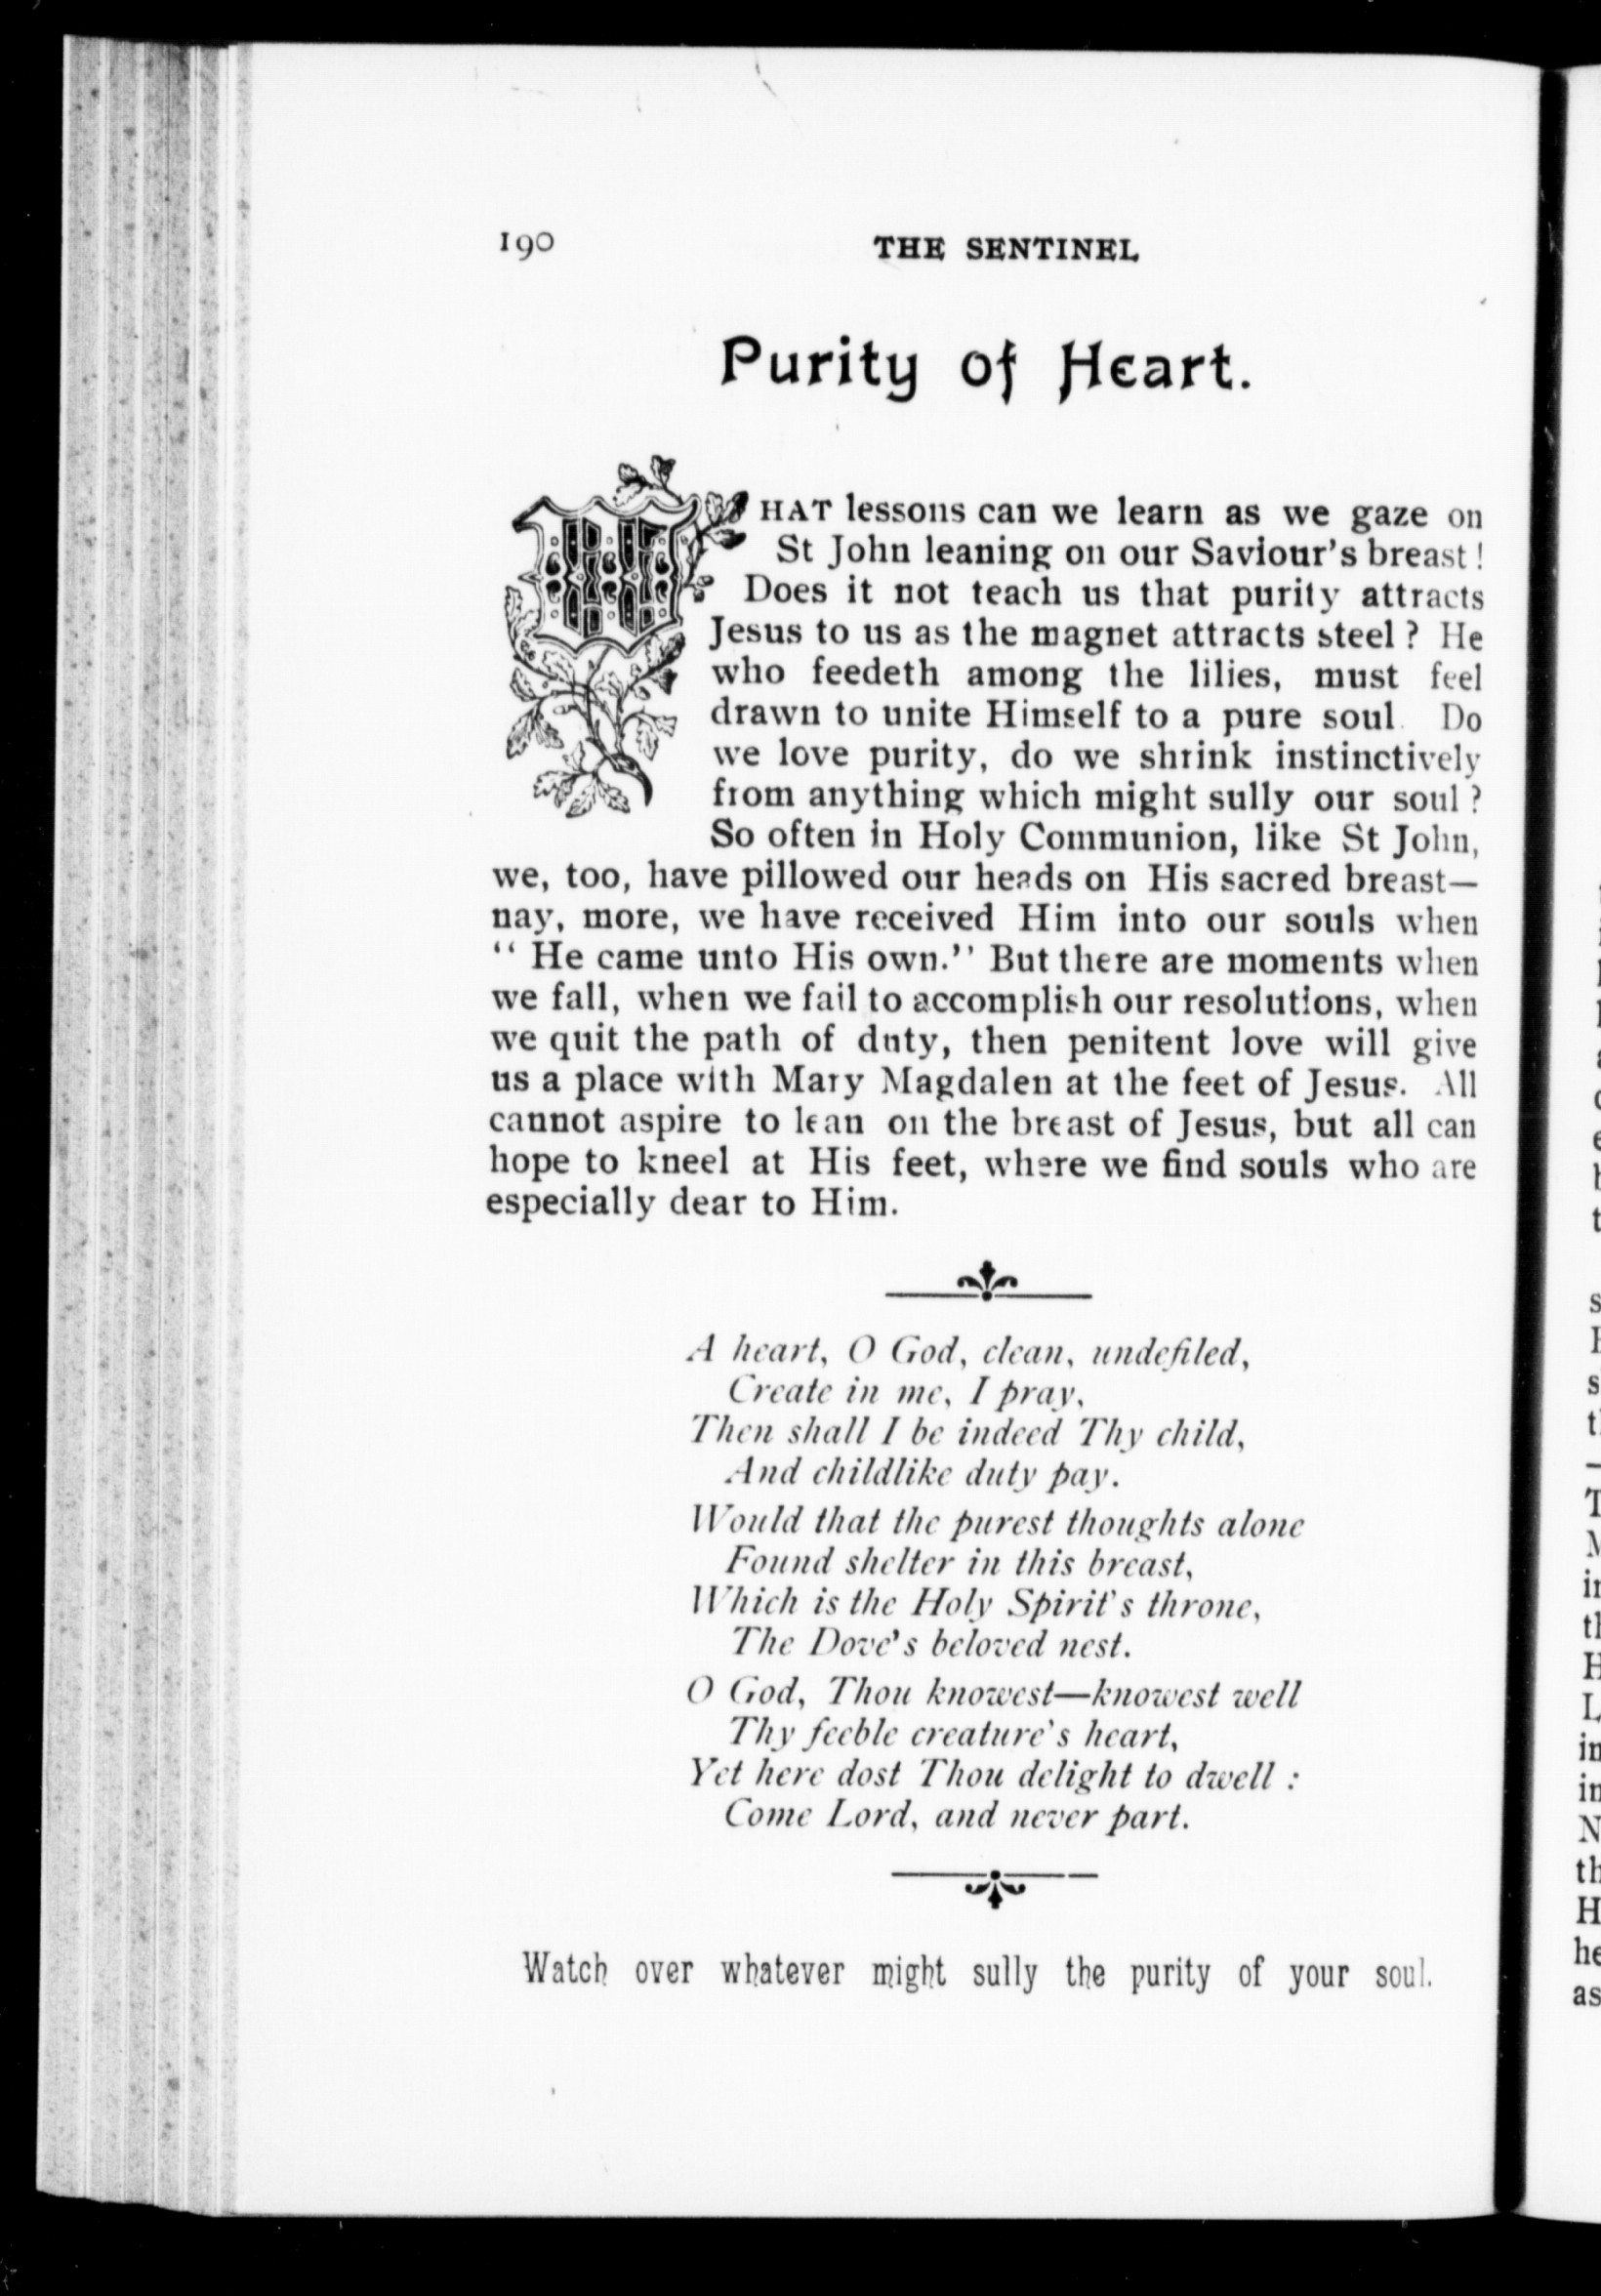 190 THE SENTINEL
Purity of Heart.
WHAT lessons can we learn as we gaze on
St John leaning on our Saviour's breast!
Does it not teach us that purity attracts
Jesus to us as the magnet attracts steel? He
who feedeth among the lilies, must feel
drawn to unite Himself to a pure soul. Do
we love purity, do we shrink instinctively
from anything which might sully our soul?
So often in Holy Communion, like St John,
we, too, have pillowed our heads on His sacred breast—
nay, more, we have received Him into our souls when
"He came unto His own." But there are moments when
we fall, when we fail to accomplish our resolutions, when
we quit the path of dnty, then penitent love will give
us a place with Mary Magdalen at the feet of Jesus. All
cannot aspire to lean on the breast of Jesus, but all can
hope to kneel at His feet, where we find souls who are
especially dear to Him.
A heart, O God, clean, undefiled,
Create in me, I pray,
Then shall I be indeed Thy child,
And childlike duty pay.
Would that the purest thoughts alone
Found shelter in this breast,
Which is the Holy Spirit's throne,
The Dove's beloved nest.
O God, Thou knowest—knowest well
Thy feeble creature's heart,
Yet here dost Thou delight to dwell :
Come Lord, and never part.
Watch over whatever might sully the purity of your soul.